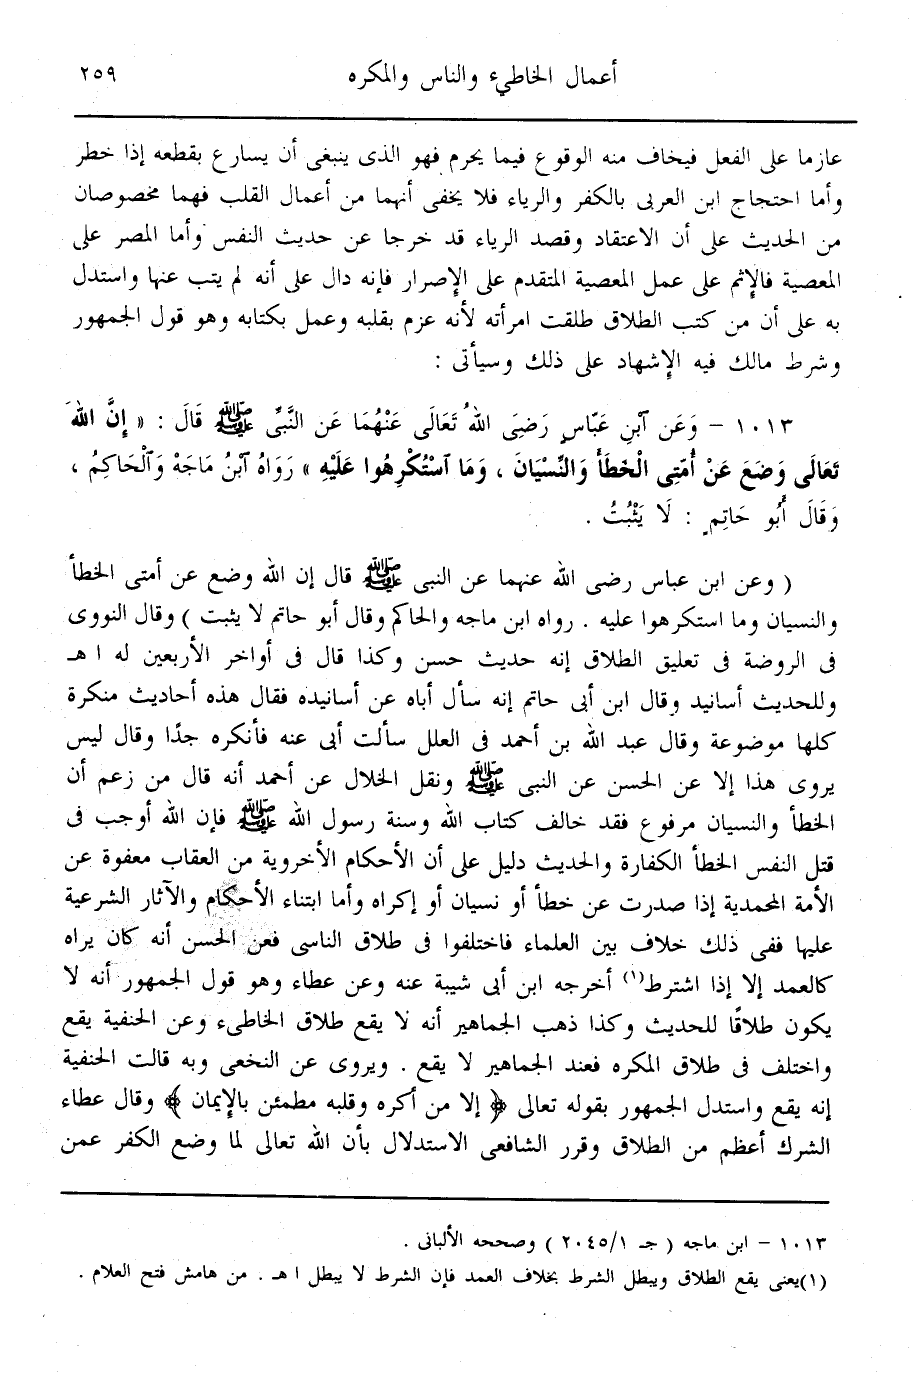 أعمال الخاطيء والناس والمكره ٢٥٩
عازما على الفعل فيخاف منه الوقوع فيما يحرم فهو الذى ينبغى أن يسارع بقطعه إذا خطر
وأما احتجاج ابن العربى بالكفر والرياء فلا يخفى أنهما من أعمال القلب فهما مخصوصان
من الحديث على أن الاعتقاد وقصد الرياء قد خرجا عن حديث النفس وأما المصر على
المعصية فالإثم على عمل المعصية المتقدم على الإصرار فإنه دال على أنه لم يتب عنها واستدل
به على أن من كتب الطلاق طلقت امرأته لأنه عزم بقلبه وعمل بكتابه وهو قول الجمهور
وشرط مالك فيه الإشهاد على ذلك وسيأتى :
١٠١٣ – وَعَن ٱبْنِ عَبَّاسٍ رَضِىَ اللهُ تَعَالَى عَنْهُمَا عَن النَّبِّى ﷺ قَالَ : « إِنَّ اللهَ
تَعَالَى وَضَعَ عَنْ أُمَّتِى الْخَطَأَ وَالنِّسْيَانَ ، وَمَا ٱسْتُكْرِهُوا عَلَيْهِ » رَوَاهُ ٱبْنُ مَاجَهْ وَٱلْحَاكِمُ ،
وَقَالَ أَبُو حَاتِمٍ : لَا يَثْبُتُ .
( وعن ابن عباس رضى الله عنهما عن النبى ﷺ قال إن الله وضع عن أمتى الخطأ
والنسيان وما استكرهوا عليه . رواه ابن ماجه والحاكم وقال أبو حاتم لا يثبت ) وقال النووى
فى الروضة فى تعليق الطلاق إنه حديث حسن وكذا قال فى أواخر الأربعين له ا هـ
وللحديث أسانيد وقال ابن أبى حاتم إنه سأل أباه عن أسانيده فقال هذه أحاديث منكرة
كلها موضوعة وقال عبد الله بن أحمد فى العلل سألت أبى عنه فأنكره جدًا وقال ليس
يروى هذا إلا عن الحسن عن النبى ﷺ ونقل الخلال عن أحمد أنه قال من زعم أن
الخطأ والنسيان مرفوع فقد خالف كتاب الله وسنة رسول الله ﷺ فإن الله أوجب فى
قتل النفس الخطأ الكفارة والحديث دليل على أن الأحكام الأخروية من العقاب معفوة عن
الأمة المحمدية إذا صدرت عن خطأ أو نسيان أو إكراه وأما ابتناء الأحكام والآثار الشرعية
عليها ففى ذلك خلاف بين العلماء فاختلفوا فى طلاق الناسى فعن الحسن أنه كان يراه
كالعمد إلا إذا اشترط(١) أخرجه ابن أبى شيبة عنه وعن عطاء وهو قول الجمهور أنه لا
يكون طلاقًا للحديث وكذا ذهب الجماهير أنه لا يقع طلاق الخاطىء وعن الحنفية يقع
واختلف فى طلاق المكره فعند الجماهير لا يقع . ويروى عن النخعى وبه قالت الحنفية
إنه يقع واستدل الجمهور بقوله تعالى ﴿ إلا من أكره وقلبه مطمئن بالإيمان ﴾ وقال عطاء
الشرك أعظم من الطلاق وقرر الشافعى الاستدلال بأن الله تعالى لما وضع الكفر عمن
١٠١٣ – ابن ماجه ( جـ ٢٠٤٥/١ ) وصححه الألبانى .
(١)يعنى يقع الطلاق ويبطل الشرط بخلاف العمد فإن الشرط لا يبطل ا هـ . من هامش فتح العلام .